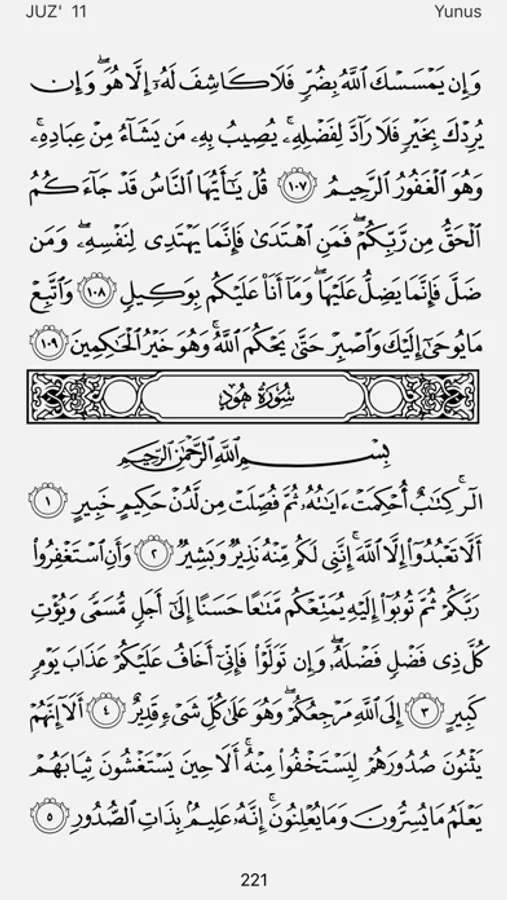 JUZ' 11 Yunus
وَإِن يَمْسَسْكَ ٱللَّهُ بِضُرٍّ فَلَا كَاشِفَ لَهُۥٓ إِلَّا هُوَۖ وَإِن
يُرِدْكَ بِخَيْرٍ فَلَا رَآدَّ لِفَضْلِهِۦۚ يُصِيبُ بِهِۦ مَن يَشَآءُ مِنْ عِبَادِهِۦۚ
وَهُوَ ٱلْغَفُورُ ٱلرَّحِيمُ ١٠٧ قُلْ يَـٰٓأَيُّهَا ٱلنَّاسُ قَدْ جَآءَكُمُ
ٱلْحَقُّ مِن رَّبِّكُمْۖ فَمَنِ ٱهْتَدَىٰ فَإِنَّمَا يَهْتَدِى لِنَفْسِهِۦۖ وَمَن
ضَلَّ فَإِنَّمَا يَضِلُّ عَلَيْهَاۖ وَمَآ أَنَا۠ عَلَيْكُم بِوَكِيلٍ ١٠٨ وَٱتَّبِعْ
مَا يُوحَىٰٓ إِلَيْكَ وَٱصْبِرْ حَتَّىٰ يَحْكُمَ ٱللَّهُۚ وَهُوَ خَيْرُ ٱلْحَـٰكِمِينَ ١٠٩
سُورَةُ هُودٍ
بِسْمِ ٱللَّهِ ٱلرَّحْمَـٰنِ ٱلرَّحِيمِ
الٓرۚ كِتَـٰبٌ أُحْكِمَتْ ءَايَـٰتُهُۥ ثُمَّ فُصِّلَتْ مِن لَّدُنْ حَكِيمٍ خَبِيرٍ ١
أَلَّا تَعْبُدُوٓا۟ إِلَّا ٱللَّهَۚ إِنَّنِى لَكُم مِّنْهُ نَذِيرٌ وَبَشِيرٌ ٢ وَأَنِ ٱسْتَغْفِرُوا۟
رَبَّكُمْ ثُمَّ تُوبُوٓا۟ إِلَيْهِ يُمَتِّعْكُم مَّتَـٰعًا حَسَنًا إِلَىٰٓ أَجَلٍ مُّسَمًّى وَيُؤْتِ
كُلَّ ذِى فَضْلٍ فَضْلَهُۥۖ وَإِن تَوَلَّوْا۟ فَإِنِّىٓ أَخَافُ عَلَيْكُمْ عَذَابَ يَوْمٍ
كَبِيرٍ ٣ إِلَى ٱللَّهِ مَرْجِعُكُمْۖ وَهُوَ عَلَىٰ كُلِّ شَىْءٍ قَدِيرٌ ٤ أَلَآ إِنَّهُمْ
يَثْنُونَ صُدُورَهُمْ لِيَسْتَخْفُوا۟ مِنْهُۚ أَلَا حِينَ يَسْتَغْشُونَ ثِيَابَهُمْ
يَعْلَمُ مَا يُسِرُّونَ وَمَا يُعْلِنُونَۚ إِنَّهُۥ عَلِيمٌۢ بِذَاتِ ٱلصُّدُورِ ٥
221